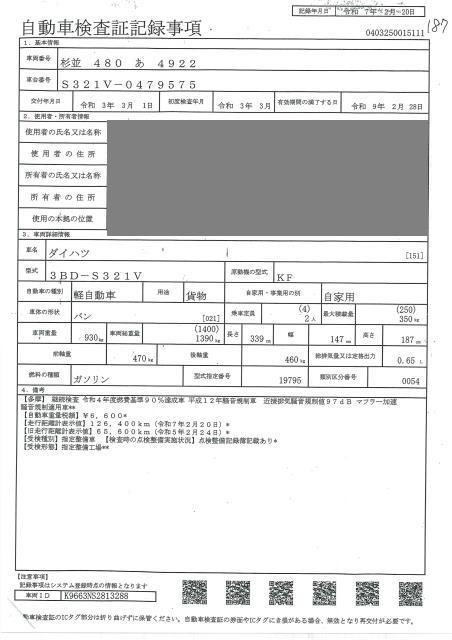 記録年月日 令和 7年 2月 20日
自動車検査証記録事項
187
0403250015111
1. 基本情報
車両番号 杉並 480 あ 4922
車台番号 S321V-0479575
交付年月日 令和 3年 3月 1日 初度検査年月 令和 3年 3月 有効期間の満了する日 令和 9年 2月 28日
2. 使用者・所有者情報
使用者の氏名又は名称
使用者の住所
所有者の氏名又は名称
所有者の住所
使用の本拠の位置
3. 車両詳細情報
車名 ダイハツ [151]
型式 3BD-S321V 原動機の型式 KF
自動車の種別 軽自動車 用途 貨物 自家用・事業用の別 自家用
車体の形状 バン [021] 乗車定員 (4) 2人 最大積載量 (250) 350kg
車両重量 930kg 車両総重量 (1400) 1390kg 長さ 339cm 幅 147cm 高さ 187cm
前軸重 470kg 後軸重 460kg 総排気量又は定格出力 0.65 L
燃料の種類 ガソリン 型式指定番号 19795 類別区分番号 0054
4. 備考
【多摩】 継続検査 令和4年度燃費基準90%達成車 平成12年騒音規制車 近接排気騒音規制値97dB マフラー加速
騒音規制適用車**
【自動車重量税額】¥6,600*
【走行距離計表示値】126,400km(令和7年2月20日)*
【旧走行距離計表示値】65,600km(令和5年2月24日)*
【受検種別】指定整備車 【検査時の点検整備実施状況】点検整備記録簿記載あり*
【受検形態】指定整備工場**
【注意事項】
記録事項はシステム登録時点の情報となります
車両ID K9663NS2813288
自動車検査証のICタグ部分は折り曲げずに保管ください。自動車検査証の券面やICタグにき損がある場合、無効となり再交付が必要です。